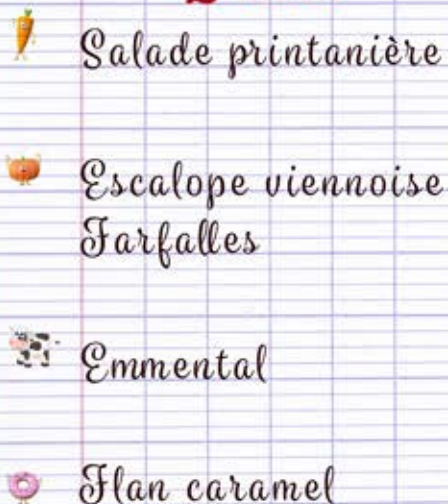 Salade printanière
Escalope viennoise
Farfalles
Emmental
Flan caramel